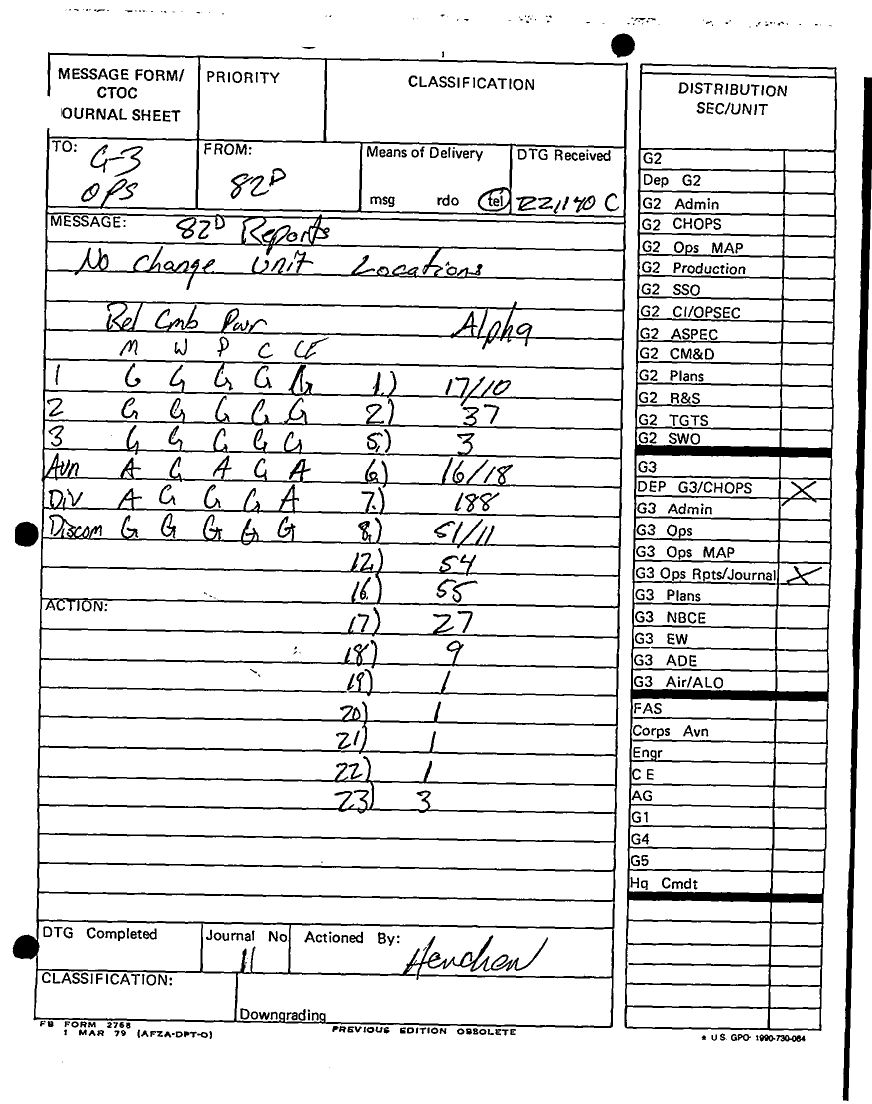 MESSAGE FORM/
CTOC
OURNAL SHEET
PRIORITY
CLASSIFICATION
TO: G-3
OPS
FROM:
82D
Means of Delivery
msg rdo tel
DTG Received
221140 C
MESSAGE: 82D Reports
No change Unit Locations
Rel Cmb Pwr Alpha
M W P C CE
1 G G G G G 1.) 17/10
2 G G G G G 2) 37
3 G G G G G 5.) 3
Avn A G A G A 6.) 16/18
Div A G G G A 7.) 188
Discom G G G G G 8.) 51/11
12.) 54
16.) 55
ACTION:
17) 27
18) 9
19) 1
20) 1
21) 1
22) 1
23) 3
DTG Completed
Journal No
11
Actioned By:
CLASSIFICATION:
Downgrading
FB FORM 2768
1 MAR 79 (AFZA-DPT-O)
PREVIOUS EDITION OBSOLETE
DISTRIBUTION
SEC/UNIT
G2
Dep G2
G2 Admin
G2 CHOPS
G2 Ops MAP
G2 Production
G2 SSO
G2 CI/OPSEC
G2 ASPEC
G2 CM&D
G2 Plans
G2 R&S
G2 TGTS
G2 SWO
G3
DEP G3/CHOPS X
G3 Admin
G3 Ops
G3 Ops MAP
G3 Ops Rpts/Journal X
G3 Plans
G3 NBCE
G3 EW
G3 ADE
G3 Air/ALO
FAS
Corps Avn
Engr
C E
AG
G1
G4
G5
Hq Cmdt
* U.S. GPO: 1990-730-084